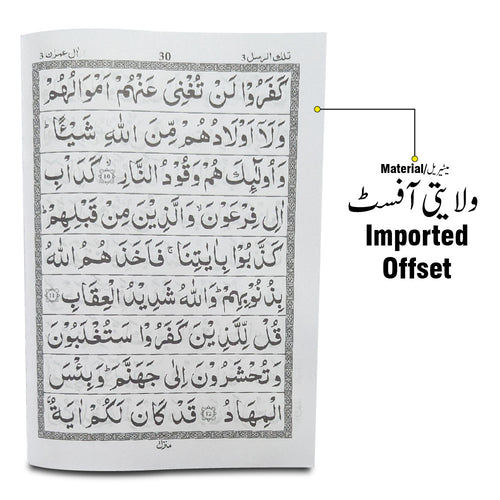 تلك الرسل 3
30
اٰل عمرٰن 3
كَفَرُوْا لَنْ تُغْنِىَ عَنْهُمْ اَمْوَالُهُمْ
وَلَاۤ اَوْلَادُهُمْ مِّنَ اللّٰهِ شَيْـًٔا ؕ
وَاُولٰٓئِكَ هُمْ وَقُوْدُ النَّارِ ۙ ﴿10﴾ كَدَاْبِ
اٰلِ فِرْعَوْنَ ۙ وَالَّذِيْنَ مِنْ قَبْلِهِمْ ؕ
كَذَّبُوْا بِاٰيٰتِنَا ۚ فَاَخَذَهُمُ اللّٰهُ
بِذُنُوْبِهِمْ ؕ وَاللّٰهُ شَدِيْدُ الْعِقَابِ ﴿11﴾
قُلْ لِّلَّذِيْنَ كَفَرُوْا سَتُغْلَبُوْنَ
وَتُحْشَرُوْنَ اِلٰى جَهَنَّمَ ؕ وَبِئْسَ
الْمِهَادُ ﴿12﴾ قَدْ كَانَ لَكُمْ اٰيَةٌ
منزل
Material/میٹیریل
ولایتی آفسٹ
Imported
Offset